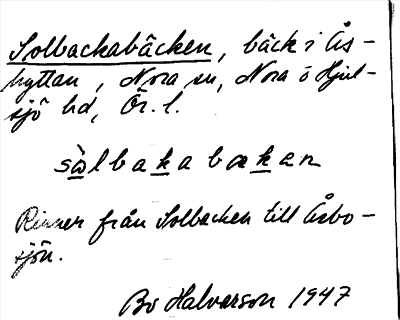 Solbackabäcken, bäck i Ås-
hyttan, Nora sn, Nora o Hjul-
sjö hd, Ör. l.
sòlbakabaken
Rinner från Solbacken till Åsbo-
sjön.
Bo Halvarson 1947